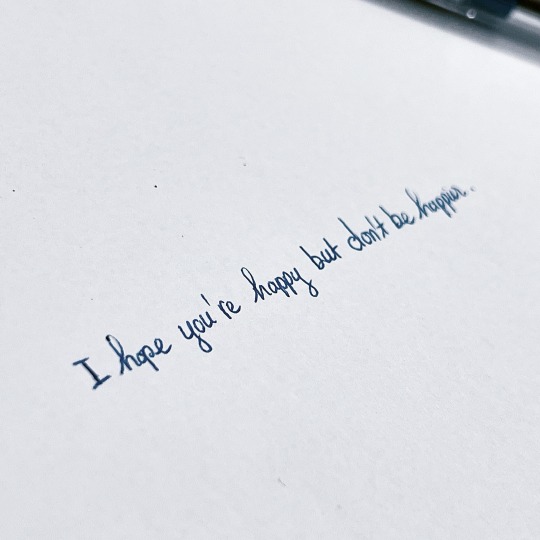 I hope you're happy but don't be happier.